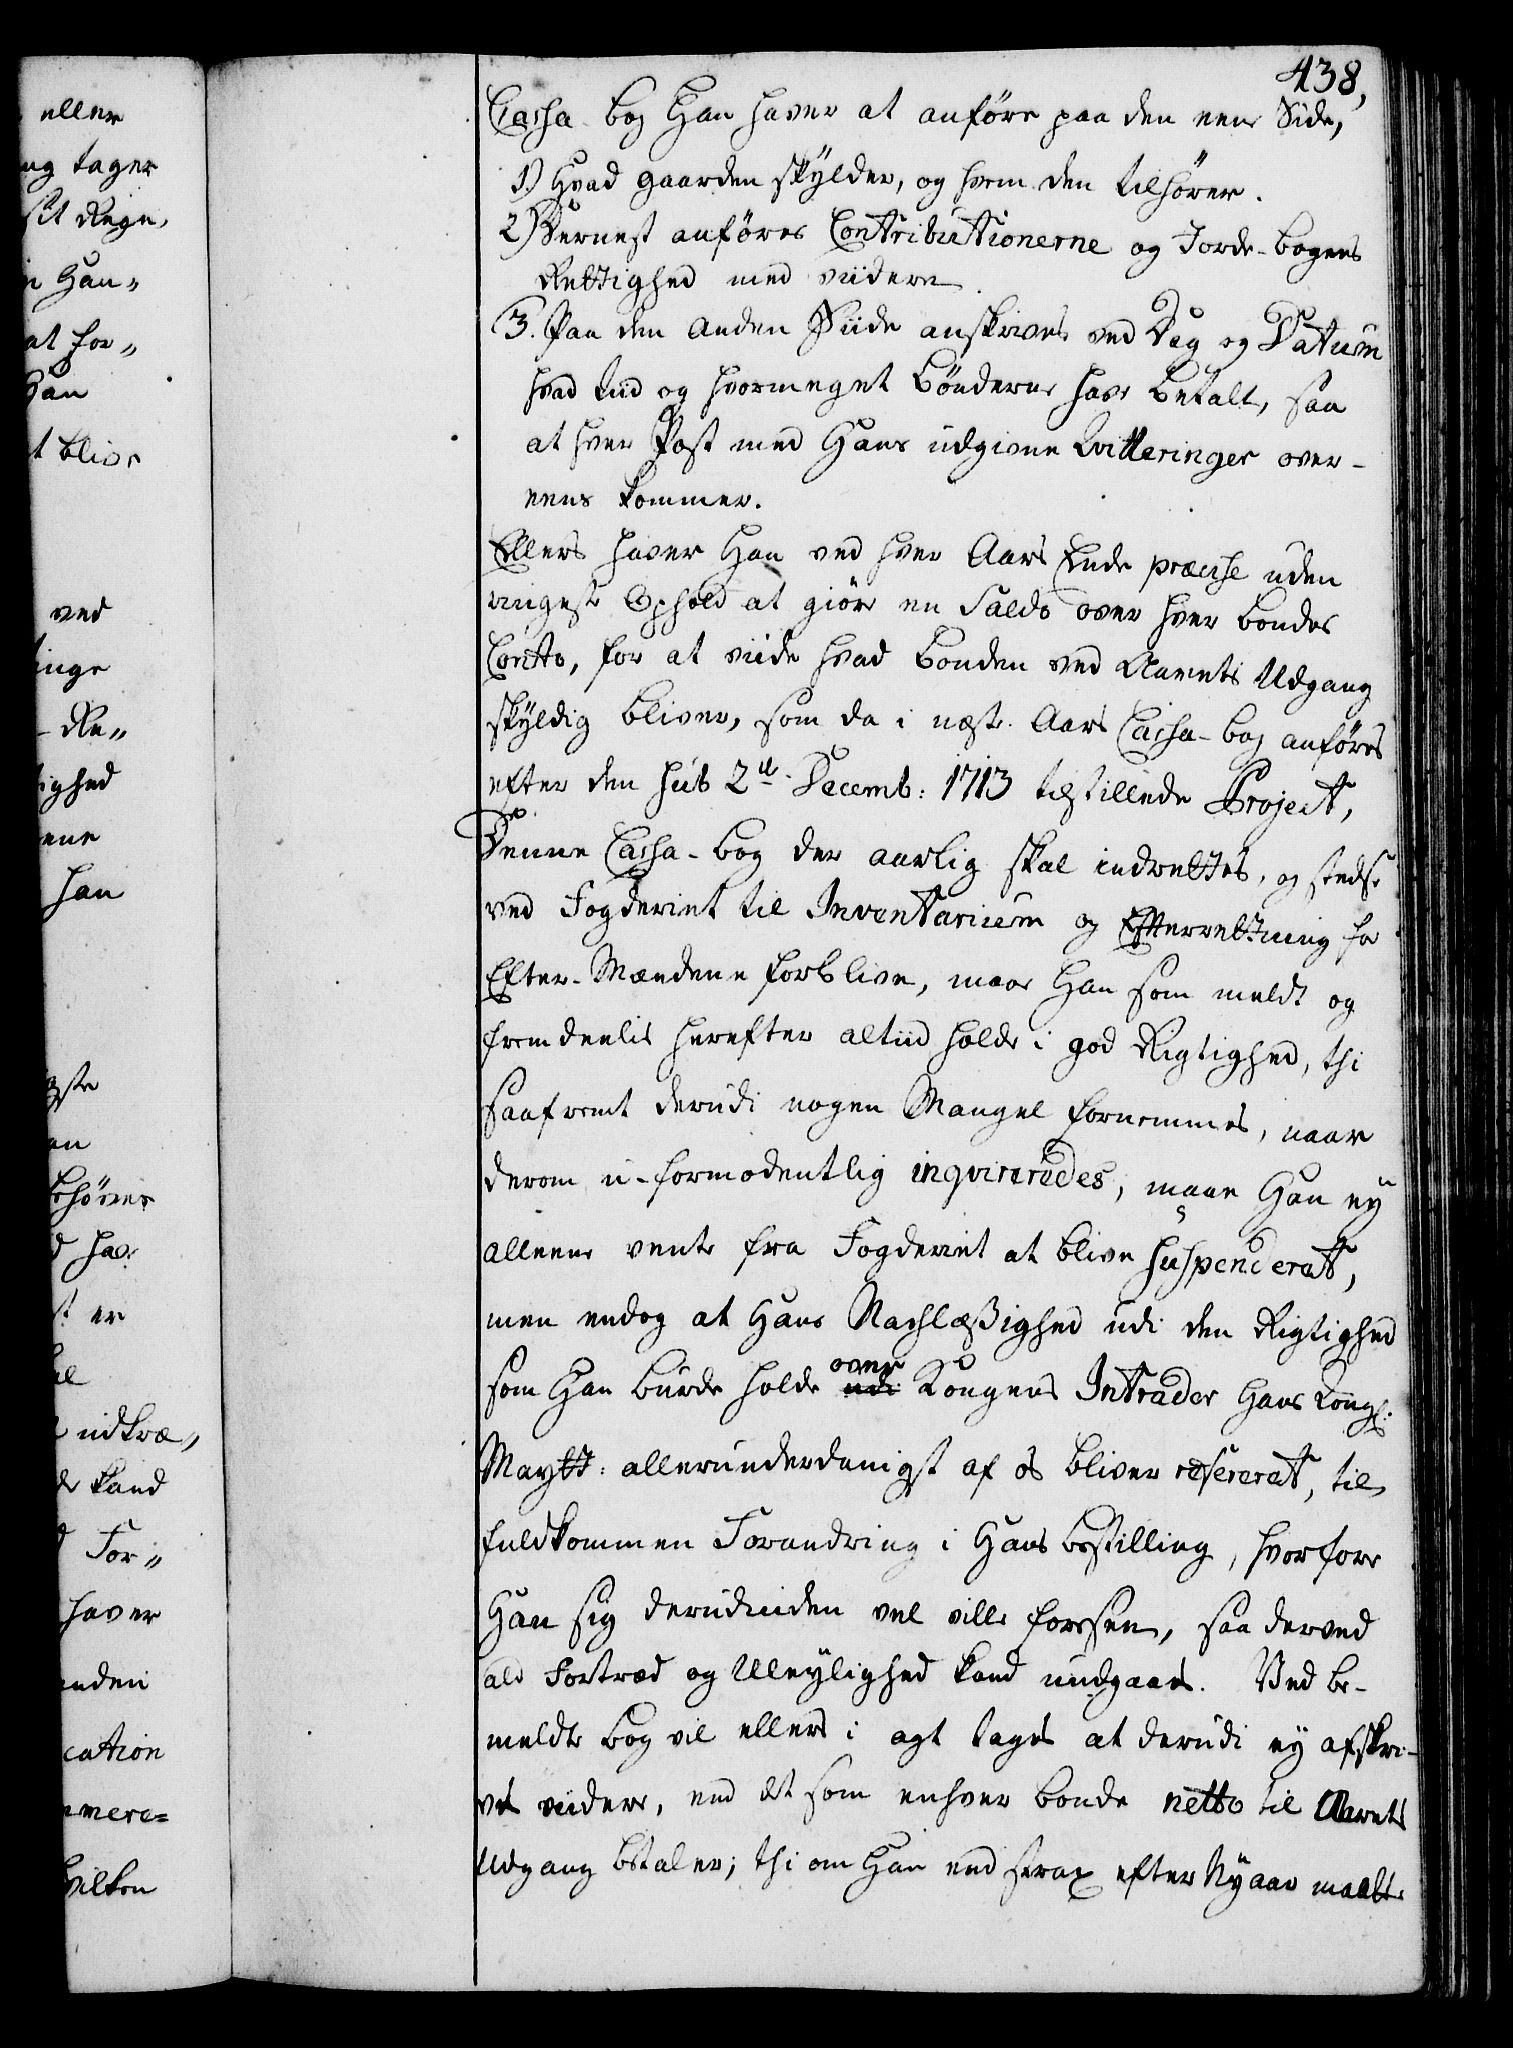 438,
Cassa bog Han haver at anføre paa den eene Side,
1) Hvad gaarden skylder, og hvem den tilhører.
2) Dernest anføres Contributionerne og Jorde-bogens
Rettighed med viidere
3. Paa den anden Siide anskrives ved Dag og Datum
hvad tiid og hvormeget bønderne have betalt, saa
at hver Post med Hans udgivne Qvitteringer over-
eens kommer.
Ellers haver Han ved hver Aars Ende præcise uden
ringeste Ophold at giøre en Saldo over hver bondes
Conto, for at viide hvad bonden ved Aarets Udgang
skyldig bliver, som da i næste Aars Cassa-bog anføres
efter den sub 2de Decemb: 1713 tilstillede Project,
Denne Cassa-bog der aarlig skal indrettes, og stedse
ved Fogderiet til Inventarium og Efterretning for
Efter-Mændene forblive, maae Han som meldt og
fremdeelis herefter altiid holde i god Rigtighed, thi
saafremt derudi nogen Mangel fornemmes, naar
derom u-formodentlig inqvireredes, maae Han ey
alleene vente fra Fogderiet at blive suspenderat,
men endog at Hans Nachlæßighed udi den Rigtighed
som Han burde holde udi over Kongens Intrader Hans Kongl:
Maytt: allerunderdanigst af os bliver refererat, til
fuldkommen Forandring i Hans bestilling, hvorfore
Han sig derudinden vel ville forsee, saa derved
ald Fortræd og Uleylighed kand undgaaes. Ved be-
meldte bog vil ellers i agt tages at derudi ey afskri-
ves viidere, end det som enhver bonde netto til Aarets
Udgang betaler; thi om Han end strax efter Nyaar maatte
eller
ng tager
sit Regn,
n Han„
at for„
Han
t blive
ved
inge
- Re„
ighed
ene
han
gste
en
behøver
d hav:
st er
al
udkræ„
de kand
d For„
haver
anden
cation
mere=
hvilken